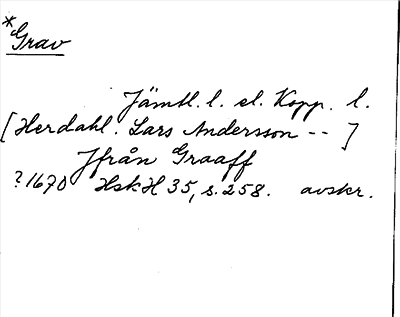 *Grav
Jämtl. l. el. Kopp. l.
[Herdahl. Lars Andersson -- ]
Ifrån Graaff
?1670 HskH 35, s. 258. avskr.